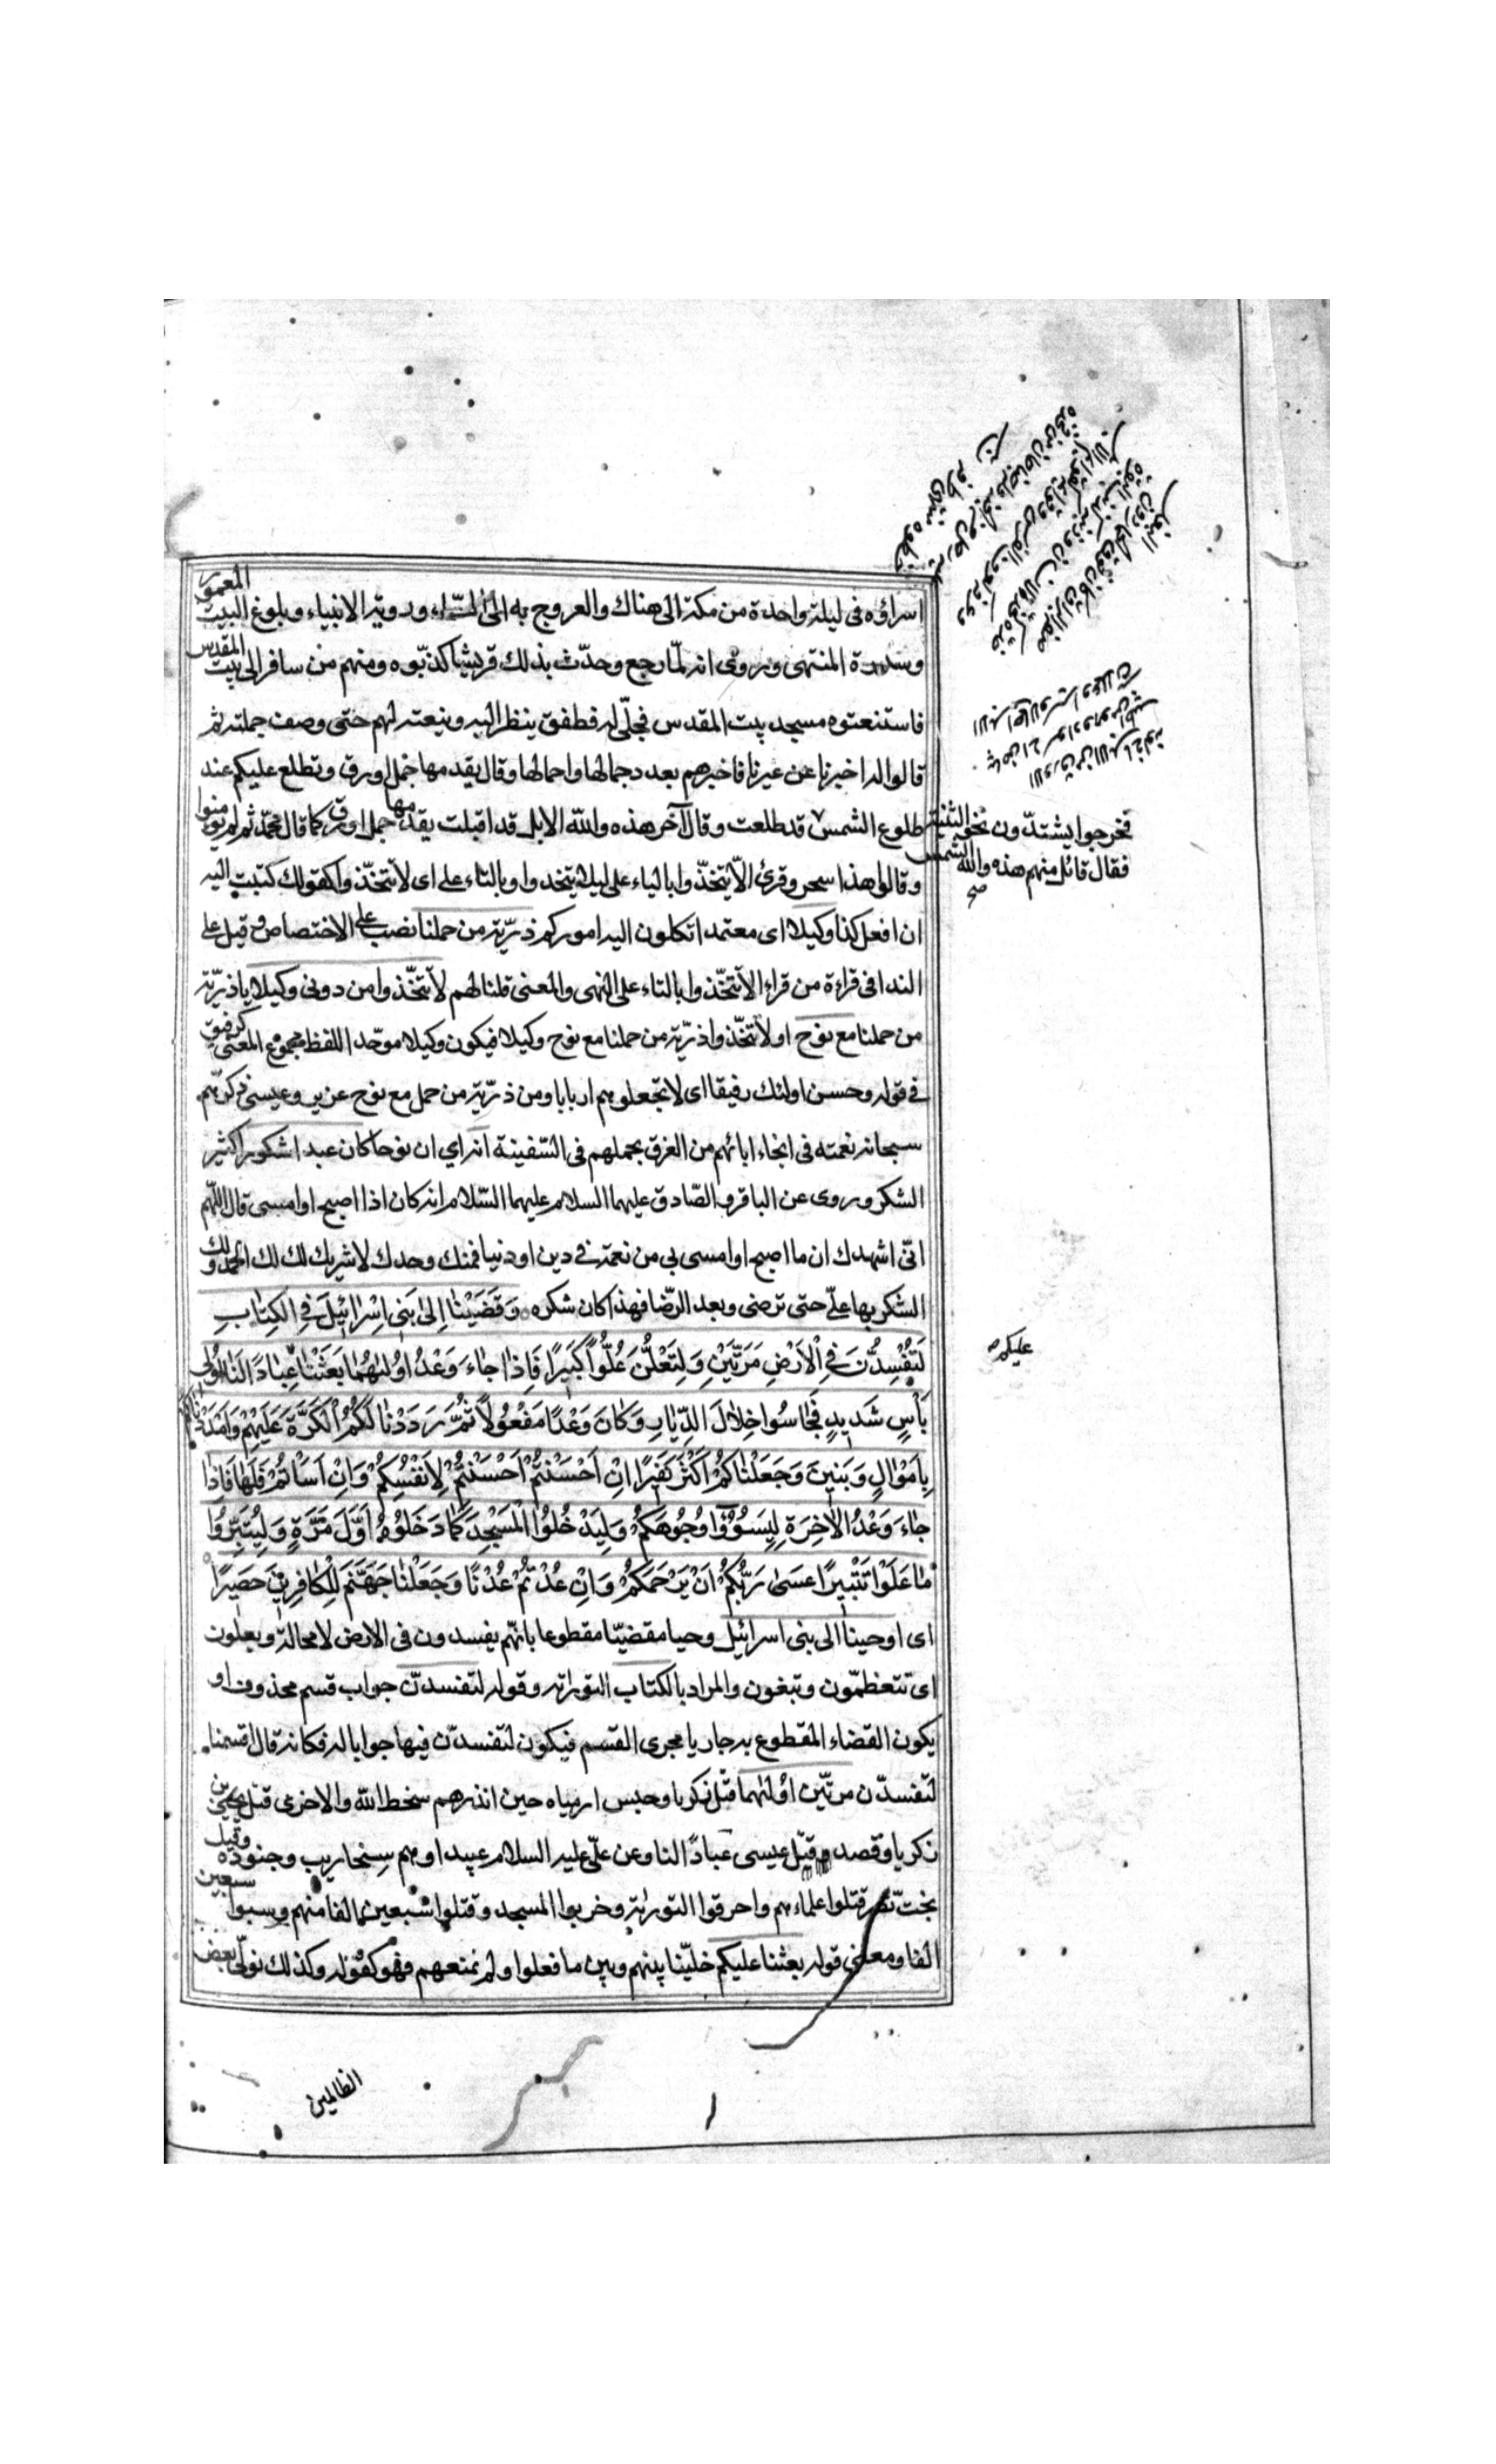 اسراؤه فى ليلة واحدة من مكة الى هناك والعروج به الى السماء ورؤية الانبياء وبلوغ البيت المعمور
وسدرة المنتهى وروى انه لمّا رجع وحدّث بذلك قريشا كذّبوه ومنهم من سافر الى بيت المقدس
فاستنعتوه مسجد بيت المقدس فجلّى له فطفق ينظر اليه وينعته لهم حتى وصف جملته ثم
قالوا له اخبرنا عن عيرنا فاخبرهم بعدد جمالها واحمالها وقال يقدمها جمل اورق وتطلع عليكم عند
طلوع الشمس قد طلعت وقال آخر هذه والله الابل قد اقبلت يقدمها جمل اورق كما قال محمّد ثم لم يؤمنوا
فخرجوا يشتدّون نحو الثنية
فقال قائل منهم هذه والله الشمس
صح
وقالوا هذا سحر وقرئ الّا يتخذوا بالياء على ليلا يتخذوا وبالتاء على اى لا تتخذوا كقولك كتبت اليه
ان افعل كذا وكيلا اى معتمدا تكلون اليه اموركم ذرّية من حملنا نصب على الاختصاص وقيل على
الندا فى قراءة من قراء الا تتخذوا بالتاء على النهى والمعنى قلنا لهم لا تتخذوا من دونى وكيلا يا ذرّية
من حملنا مع نوح او لا تتخذوا ذرّية من حملنا مع نوح وكيلا فيكون وكيلا موحّد اللفظ مجموع المعنى كرفيق
فى قوله وحسن اولئك رفيقا اى لا تجعلوهم اربابا ومن ذرّية من حمل مع نوح عزير وعيسى ذكرهم
سبحانه نعمته فى انجاء ابائهم من الغرق بحملهم فى السّفينة انه اي ان نوحا كان عبدا شكورا كثير
الشكر وروى عن الباقر والصّادق عليهما السلام عليهما السّلام انه كان اذا اصبح او امسى قال اللّهم
انّى اشهدك ان ما اصبح او امسى بى من نعمة فى دين او دنيا فمنك وحدك لا شريك لك لك الحمد ولك
الشكر بها علىّ حتى ترضى وبعد الرّضا فهذا كان شكره وَقَضَيْنَا اِلىٰ بَنى اِسْرٰائيلَ فِى الْكِتٰابِ
لَتُفْسِدُنَّ فِى الْاَرْضِ مَرَّتَيْنِ وَلَتَعْلُنَّ عُلُوًّا كَبيرًا فَاِذٰا جٰاءَ وَعْدُ اوُلٰهُمٰا بَعَثْنٰا عِبٰادًا لَنٰا اُولى
عليكم
بَأْسٍ شَديدٍ فَجٰاسُوا خِلٰالَ الدِّيٰارِ وَكٰانَ وَعْدًا مَفْعُولًا ثُمَّ رَدَدْنٰا لَكُمُ الْكَرَّةَ عَلَيْهِمْ وَاَمْدَدْنٰاكُمْ
بِاَمْوٰالٍ وَبَنينَ وَجَعَلْنٰاكُمْ اَكْثَرَ نَفيرًا اِنْ اَحْسَنْتُمْ اَحْسَنْتُمْ لِاَنْفُسِكُمْ وَاِنْ اَسَأْتُمْ فَلَهٰا فَاِذٰا
جٰاءَ وَعْدُ الْاٰخِرَةِ لِيَسُوؤُا وُجُوهَكُمْ وَلِيَدْخُلُوا الْمَسْجِدَ كَمٰا دَخَلُوهُ اَوَّلَ مَرَّةٍ وَلِيُتَبِّرُوا
مٰا عَلَوْا تَتْبيرًا عَسىٰ رَبُّكُمْ اَنْ يَرْحَمَكُمْ وَاِنْ عُدْتُمْ عُدْنٰا وَجَعَلْنٰا جَهَنَّمَ لِلْكٰافِرينَ حَصيرًا
اى اوحينا الى بنى اسرائيل وحيا مقضيّا مقطوعا بانّهم يفسدون فى الارض لا محالة ويعلون
اى تتعظمّون وتبغون والمراد بالكتاب التوراتة وقوله لتفسدنّ جواب قسم محذوف او
يكون القضاء المقطوع به جاريا مجرى القسم فيكون لتفسدنّ فيها جوابا له فكانه قال اقسمنا
لتفسدّن مرتّين اوُلٰهما قتل زكريا وحبس ارمياه حين انذرهم سخط الله والاخرى قتل يحيى بن
زكريا وقصد وقتل عيسى عبادًا لنا وعن علّى عليه السلام عبيدا وهم سنحاريب وجنوده وقيل
بخت نصر قتلوا علماءهم واحرقوا التورٰية وخربوا المسجد وقتلوا سبعين الفا منهم وسبوا سبعين
الفا ومعنى قوله بعثنا عليكم خلّينا بينهم وبين ما فعلوا ولم نمنعهم فهو كقوله وكذلك نولّى بعض
الظالمين